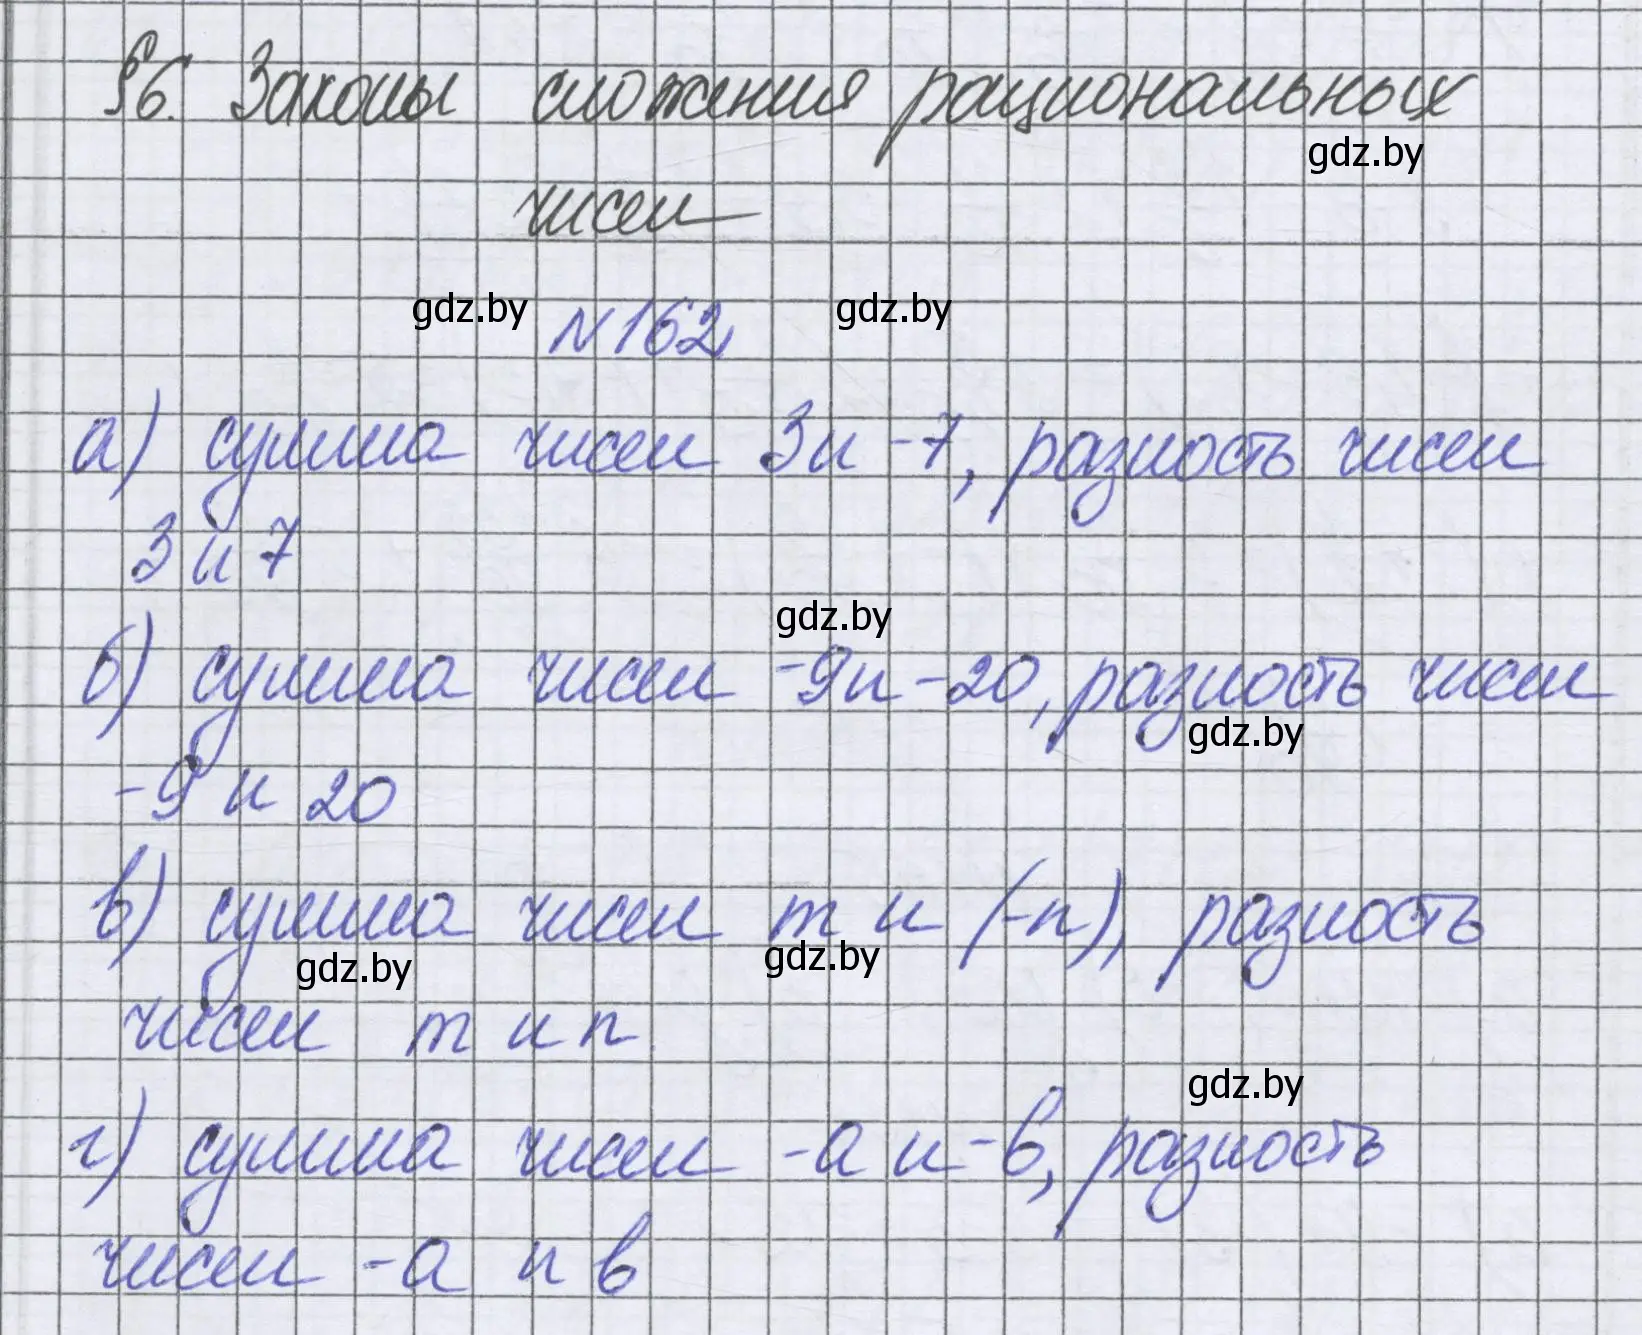 §6. Законы сложения рациональных
gdz.by
чисел
gdz.by №162 gdz.by
а) сумма чисел 3 и -7, разность чисел
3 и 7
gdz.by
б) сумма чисел -9 и -20, разность чисел
gdz.by
-9 и 20
в) сумма чисел m и (-n), разность
gdz.by gdz.by
чисел m и n
gdz.by
г) сумма чисел -a и -b, разность
чисел -a и b